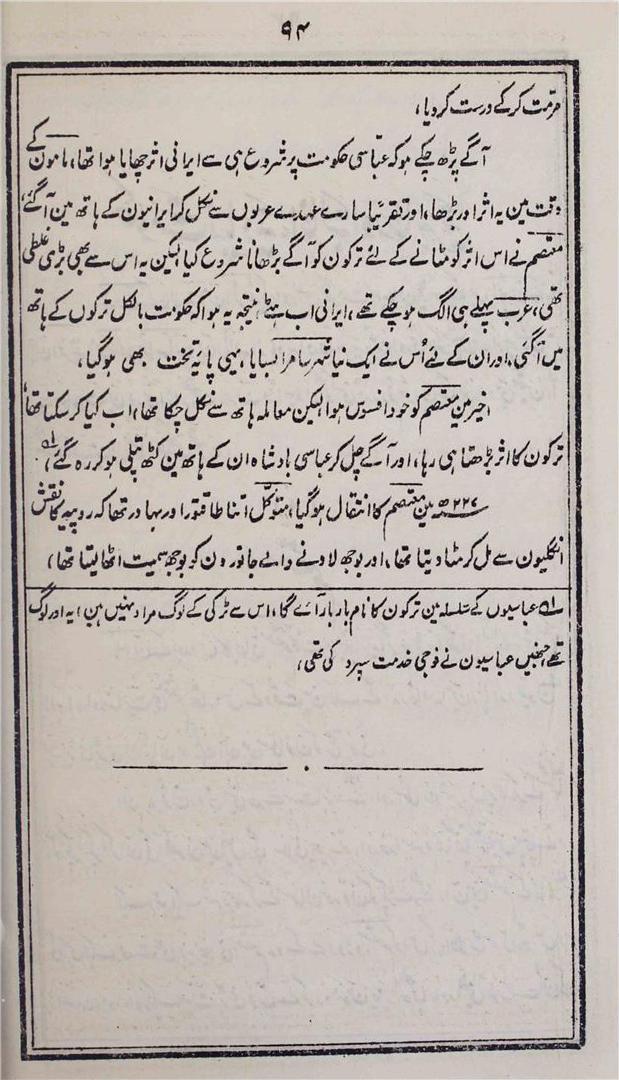 ۹۴
مرمت کرکے درست کردیا،
آگے پڑھ چکے ہو کہ عباسی حکومت پر شروع ہی سے ایرانی اثر چھایا ہوا تھا، مامون کے
وقت مین یہ اثر اور بڑھا، اور تقریباً سارے عہدے عربوں سے نکل کر ایرانیون کے ہاتھ مین آگئے،
معتصم نے اس اثر کو مٹانے کے لئے ترکون کو آگے بڑھانا شروع کیا لیکن یہ اس سے بھی بڑی غلطی
تھی، عرب پہلے ہی الگ ہو چکے تھے، ایرانی اب ہٹے، نتیجہ یہ ہوا کہ حکومت بالکل ترکوں کے ہاتھ
میں آگئی، اور ان کے لئے اُس نے ایک نیا شہر سامرا بسایا، یہی پایۂ تخت بھی ہوگیا،
اخیر مین معتصم کو خود افسوس ہوا لیکن معاملہ ہاتھ سے نکل چکا تھا، اب کیا کر سکتا تھا،
ترکون کا اثر بڑھتا ہی رہا، اور آگے چل کر عباسی بادشاہ ان کے ہاتھ مین کٹھ پتلی ہو کر رہ گئے، ۱؎
۲۲۷ھ مین معتصم کا انتقال ہوگیا، متوکل اتنا طاقتور اور بہادر تھا کہ روپیہ کا نقش
انگلیون سے مل کر مٹا دیتا تھا، اور بوجھ لادنے والے جانورون کو بوجھ سمیت اٹھا لیتا تھا،
۱؎ عباسیوں کے سلسلہ مین ترکون کا نام بار بار آئے گا، اس سے ٹرکی کے لوگ مراد نہیں ہین، یہ اور لوگ
تھے جنھیں عباسیون نے فوجی خدمت سپرد کی تھی،